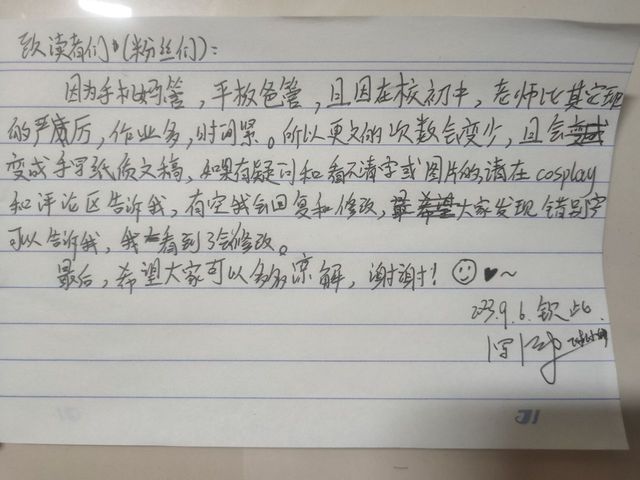 致读者们(粉丝们):
因为手机妈管,平板爸管,且因在校初中,老师比其它班
的严厉,作业多,时间紧。所以更文的次数会变少,且会
变成手写纸质文稿,如果有疑问和看不清字或图片的,请在cosplay
和评论区告诉我,有空我会回复和修改,大家发现错别字
可以告诉我,我看到了会修改。
最后,希望大家可以多多谅解,谢谢!
2023.9.6.钦此.